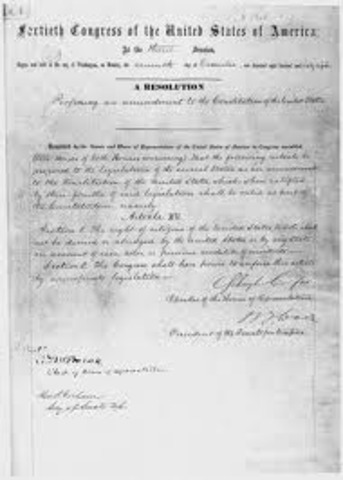 Fortieth Congress of the United States of America;
At the Third Session,
Begun and held at the city of Washington, on Monday, the seventh day of December, one thousand eight hundred and sixty-eight
A RESOLUTION
Proposing an amendment to the Constitution of the United States.
Resolved by the Senate and House of Representatives of the United States of America in Congress assembled,
(two thirds of both Houses concurring) That the following article be
proposed to the Legislatures of the several States as an amendment
to the Constitution of the United States which, when ratified
by three fourths of said legislatures shall be valid as part of
the Constitution, namely:
Article XV.
Section 1. The right of citizens of the United States to vote shall
not be denied or abridged by the United States or by any State
on account of race, color, or previous condition of servitude.
Section 2. The Congress shall have power to enforce this article
by appropriate legislation.
Speaker of the House of Representatives
President of the Senate pro tempore
Clerk of House of Representatives